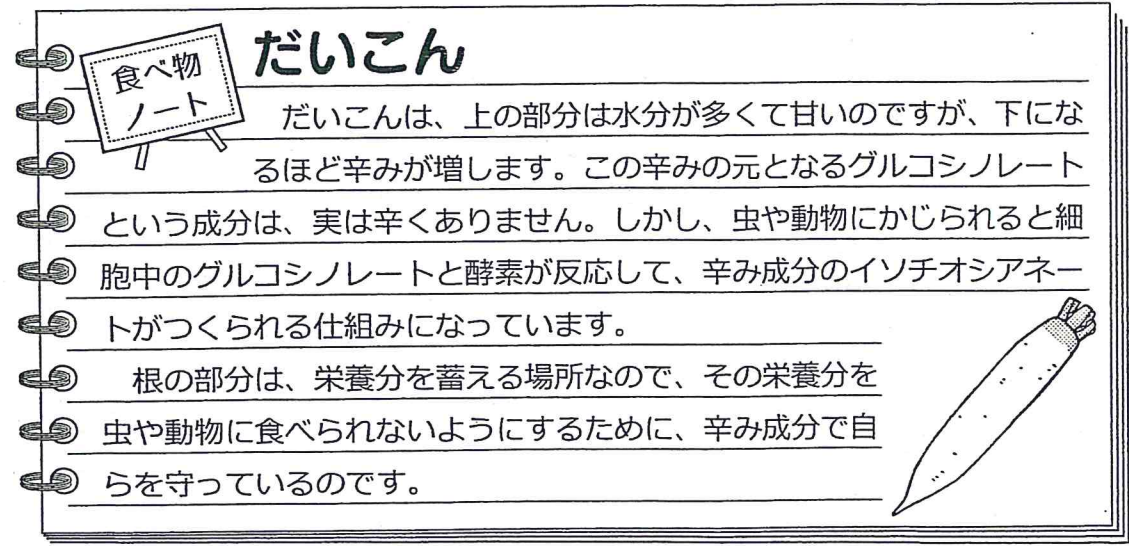 食べ物
ノート
だいこん
だいこんは、上の部分は水分が多くて甘いのですが、下にな
るほど辛みが増します。この辛みの元となるグルコシノレート
という成分は、実は辛くありません。しかし、虫や動物にかじられると細
胞中のグルコシノレートと酵素が反応して、辛み成分のイソチオシアネー
トがつくられる仕組みになっています。
根の部分は、栄養分を蓄える場所なので、その栄養分を
虫や動物に食べられないようにするために、辛み成分で自
らを守っているのです。